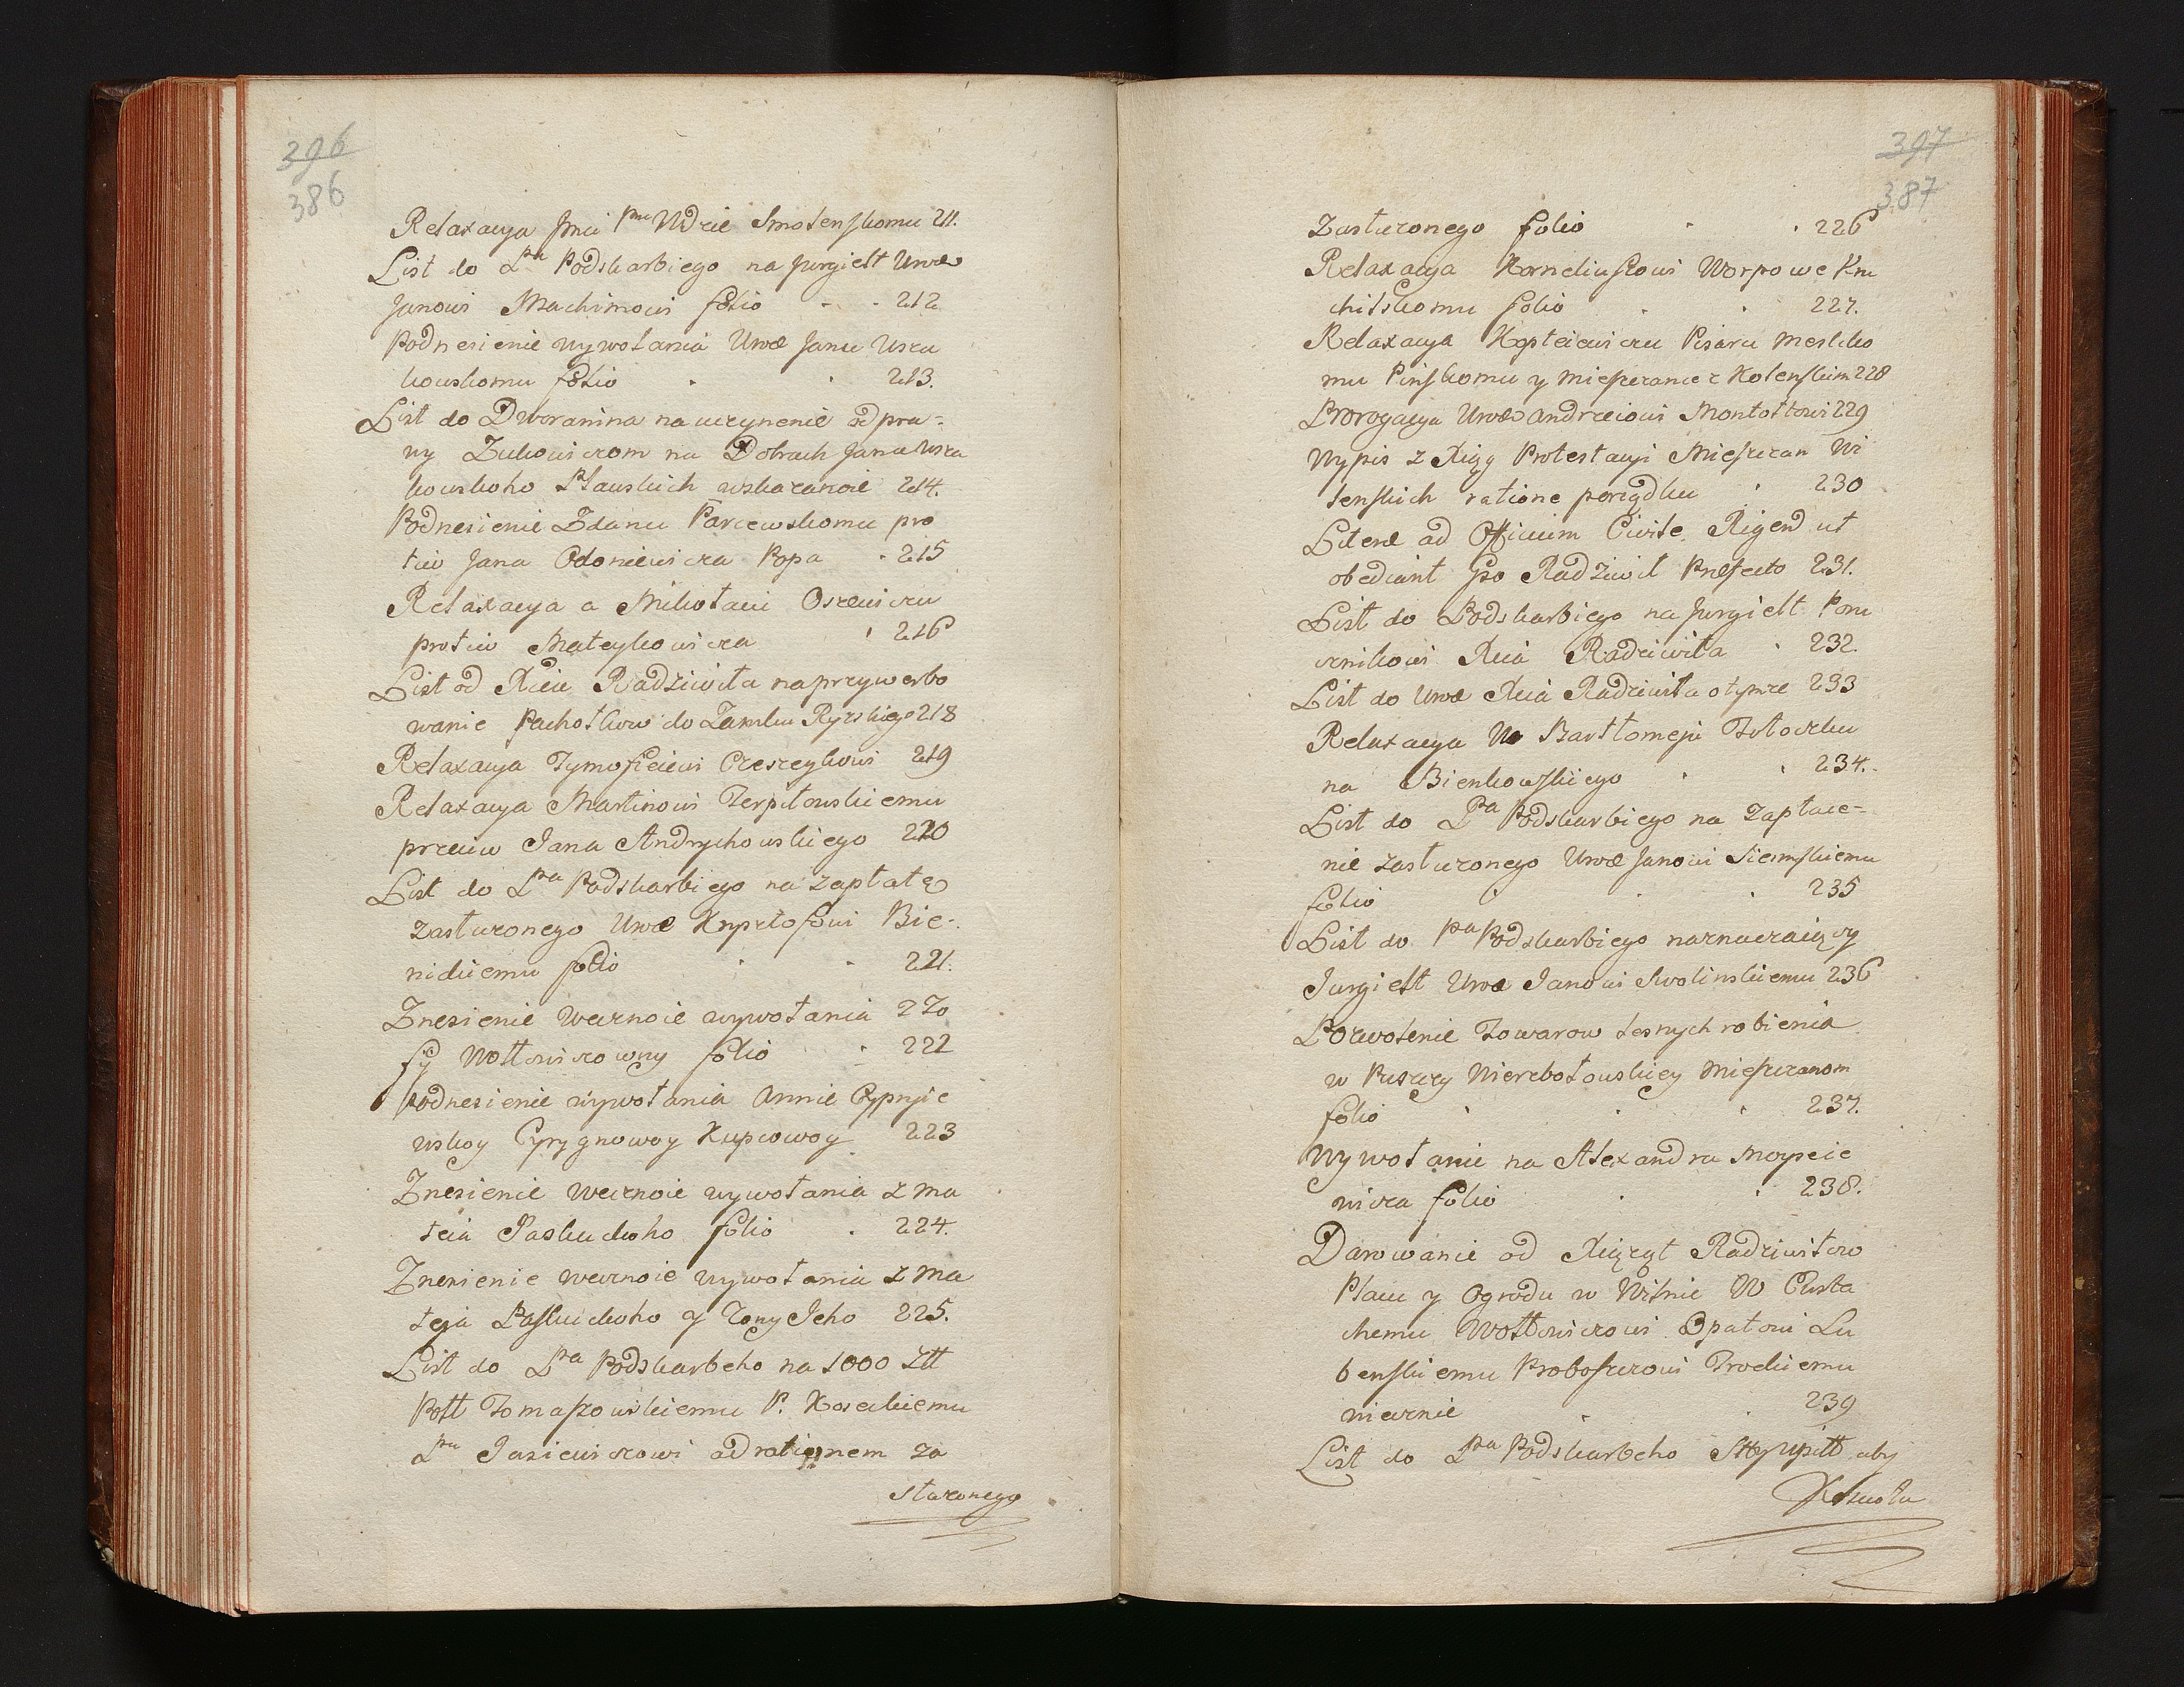 396
386
Relaxacya Jmci Pnu Wdzie Smolenskomu 211.
List do Pna Podskarbiego na Jurgielt Urod
Janowi Machimowi folio - - 212
Podnesienie wywołania Urod Janu Usza
kowskomu folio . . 213.
List do Dworanina na uczynenie odpra=
wy Zukowiczom na Dobrach Jana Usza
kowskoho Pławskich wskazanoie 214.
Podnesienie Zdanu Parcewskomu pro
tiw Jana Odoniewicza Popa . 215
Relaxacya a Mikołaiu Oszewiczu
protiw Mateykowicza . 216
List od Xcia Radziwiła na przywerbo
wanie Pachołkow do Zamku Ryzskiego 218
Relaxacya Tymofieiewi Czeczeykowi 219
Relaxacya Martinowi Terpiłowskiemu
przeciw Jana Andrychowskiego 220
List do Pna Podskarbiego na zapłatę
zasłuzonego Urod Krysztofowi Bie-
nickiemu folio . . 221.
Znesienie wecznoie wywołania z Zo
fij Wołłowiczowny folio . 222
Podnesienie wywołania Annie Cypryie
wskoy Cyrygnowoy Kupcowoy 223
Znesienie wecznoie wywołania z Ma
teia Paskudoho folio . 224.
Znesienie wecznoie wywołania z Ma
teja Paskudoho y Zony Jeho 225.
List do Pna Podskarbeho na 1000 Złł
Poll Tomaszowskiemu P. Kossakiemu
Pnu Jasiewiczowi ad rationem za
słuzonego
397
387
Zasłuzonego folio . . 226
Relaxacya Korneliuszowi Worpowe Kru
chilskomu folio . . 227.
Relaxacya Kopteiewiczu Pisaru Mesticko
mu Pinskomu y Mieszczance Kolenskim 228
Prorogacya Urod Andrzeiowi Montołtowi 229
Wypis z Xiąg Protestacyi Mieszczan Wi
lenskich ratione porządku . 230
Literæ ad Officium Civile Rigen ut
obediant Gso Radziwil Præfecto 231.
List do Podskarbiego na Jurgielt Poru
cznikowi Xcia Radziwiła . 232.
List do Urod Xcia Radziwiła otymze 233
Relaxacya Uo Bartłomeju Tołoczku
na Bienkowskiego . . 234.
List do Pna Podskarbiego na Zapłace-
nie zasłuzonego Urod Janowi Siesinskiemu
folio . . . 235
List do Pna Podskarbiego naznaczaiączy
Jurgielt Urod Janowi Swolinskiemu 236
Pozwolenie Towarow lesnych robienia
w Puszczy Nierzbołowskiey Mieszczanom
folio . . . 237.
Wywołanie na Alexandra Moyseie
wicza folio . . 238.
Darowanie od Xiążąt Radziwiłow
Placu y Ogrodu w Wilnie W Eusta
chemu Wołłowiczowi Opatowi Lu
benskiemu Proboszczowi Trockiemu
wiecznie . . 239
List do Pna Podskarbeho Skrypitt aby